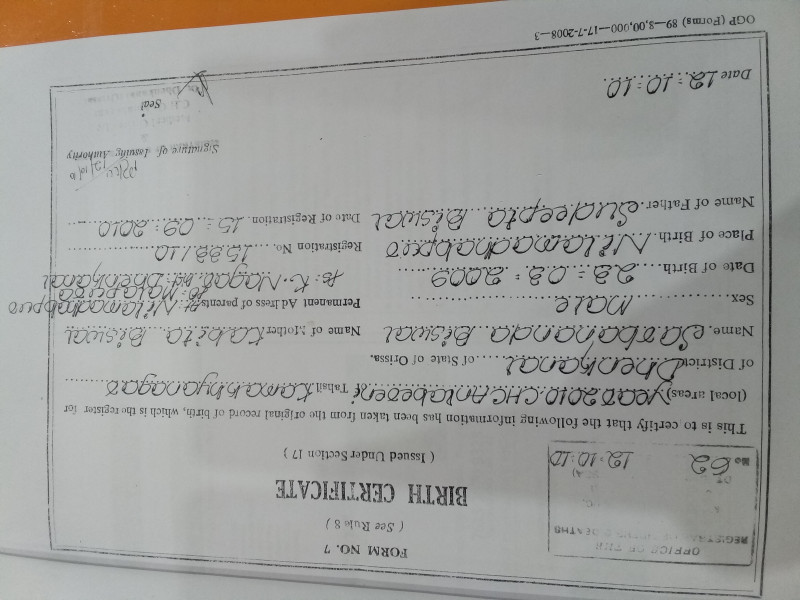 OFFICE OF THE
REGISTRAR OF BIRTHS & DEATHS
No 62 12.10.10
FORM NO. 7
( See Rule 8 )
BIRTH CERTIFICATE
( Issued Under Section 17 )
This is to certify that the following information has been taken from the original record of birth, which is the register for
(local areas) year 2010. CHC Ankabeoeni of Tahsil Kamakhyanagar
of District Dhenkanal of State of Orissa.
Name. Sarbananda Biswal
Name of Mother Kabita Biswal
Sex Male
Permanent Address of parents At: Nilamadhabpur
Date of Birth 23 : 03 : 2009
Ps: K. Nagar Dist: Dhenkanal
Place of Birth Nilamadhabpur
Registration No. 1538/10
Name of Father Sudeepta Biswal
Date of Registration 15 : 09 : 2010
Signature of Issuing Authority
12/10/10
Seal
Date 12 : 10 : 10
OGP (Forms) 89—8,00,000—17-7-2008—3